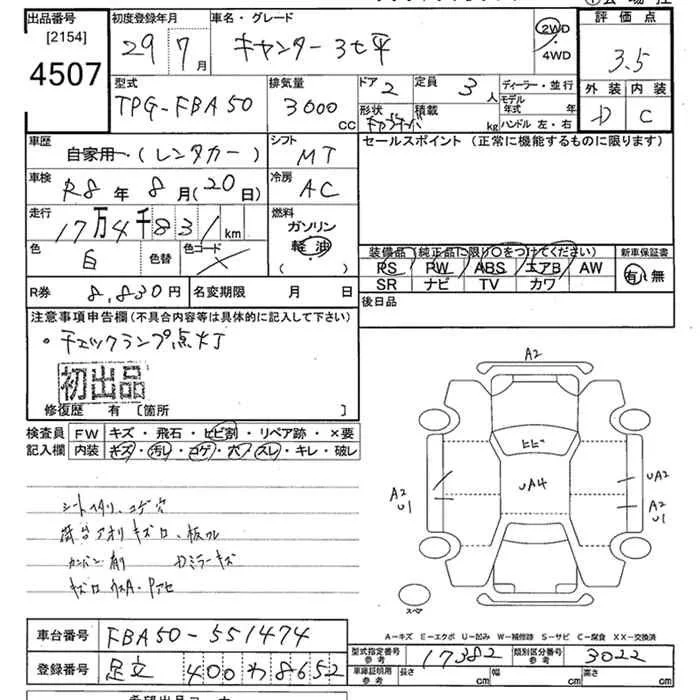 出品番号
[2154]
4507
初度登録年月
29 7月
車名・グレード
キャンター3t平
2WD
4WD
評価点
3.5
外装 内装
D C
型式
TPG-FBA50
排気量
3000 CC
ドア 2
定員 3人
形状
積載 kg
ディーラー・並行
モデル年式 年
ハンドル 左・右
車歴
自家用 (レンタカー)
シフト
MT
セールスポイント(正常に機能するものに限ります)
車検
R8年8月(20日)
冷房
AC
走行
17万4千831km
燃料
ガソリン
軽油
( )
色
白
色替
色コード
装備品(純正品に限り○をつけてください)
PS PW ABS エアB AW
SR ナビ TV カワ
新車保証書
有・無
R券 8,830円
名変期限 月 日
後日品
注意事項申告欄(不具合内容等は具体的に記入して下さい)
・チェックランプ点灯
初出品
修復歴 有 [箇所 ]
検査員
記入欄
FW キズ・飛石・ヒビ割・リペア跡・×要
内装 キズ・汚レ・コゲ・穴・スレ・キレ・破レ
A2
ヒビ
UA4
A2
U1
UA2
A2
U1
スペア
A-キズ E-エクボ U-凹み W-補修跡 S-サビ C-腐食 XX-交換済
車台番号 FBA50-551474
登録番号 足立 400わ8652
型式指定番号
参考
17382
類別区分番号
参考
3022
車庫証明用
参考
長さ cm
幅 cm
高さ cm